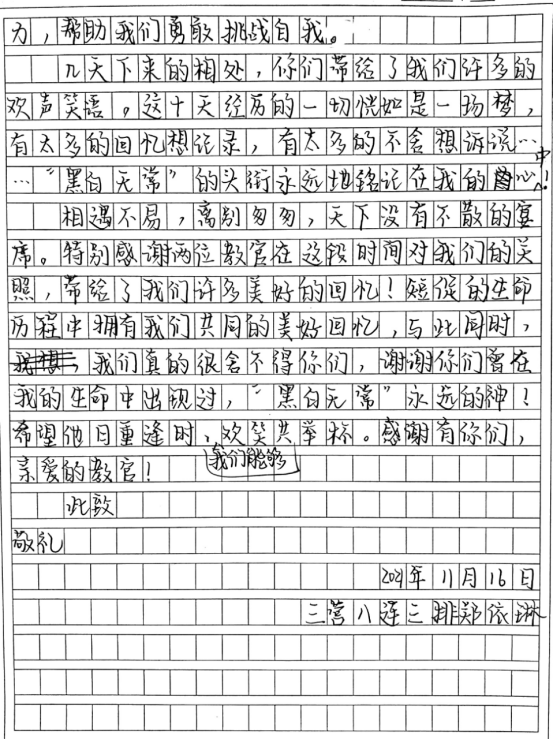 力，帮助我们勇敢挑战自我。
几天下来的相处，你们带给了我们许多的
欢声笑语。这十天经历的一切恍如是一场梦，
有太多的回忆想记录，有太多的不舍想诉说…
…“黑白无常”的头衔永远地铭记在我的心中！
相遇不易，离别匆匆，天下没有不散的宴
席。特别感谢两位教官在这段时间对我们的关
照，带给了我们许多美好的回忆！短促的生命
历程中拥有我们共同的美好回忆，与此同时，
我们真的很舍不得你们，谢谢你们曾在
我的生命中出现过，“黑白无常”永远的神！
希望他日重逢时，我们能够欢笑共举杯。感谢有你们，
亲爱的教官！
此致
敬礼
2021年11月16日
三营八连三排郑依琳